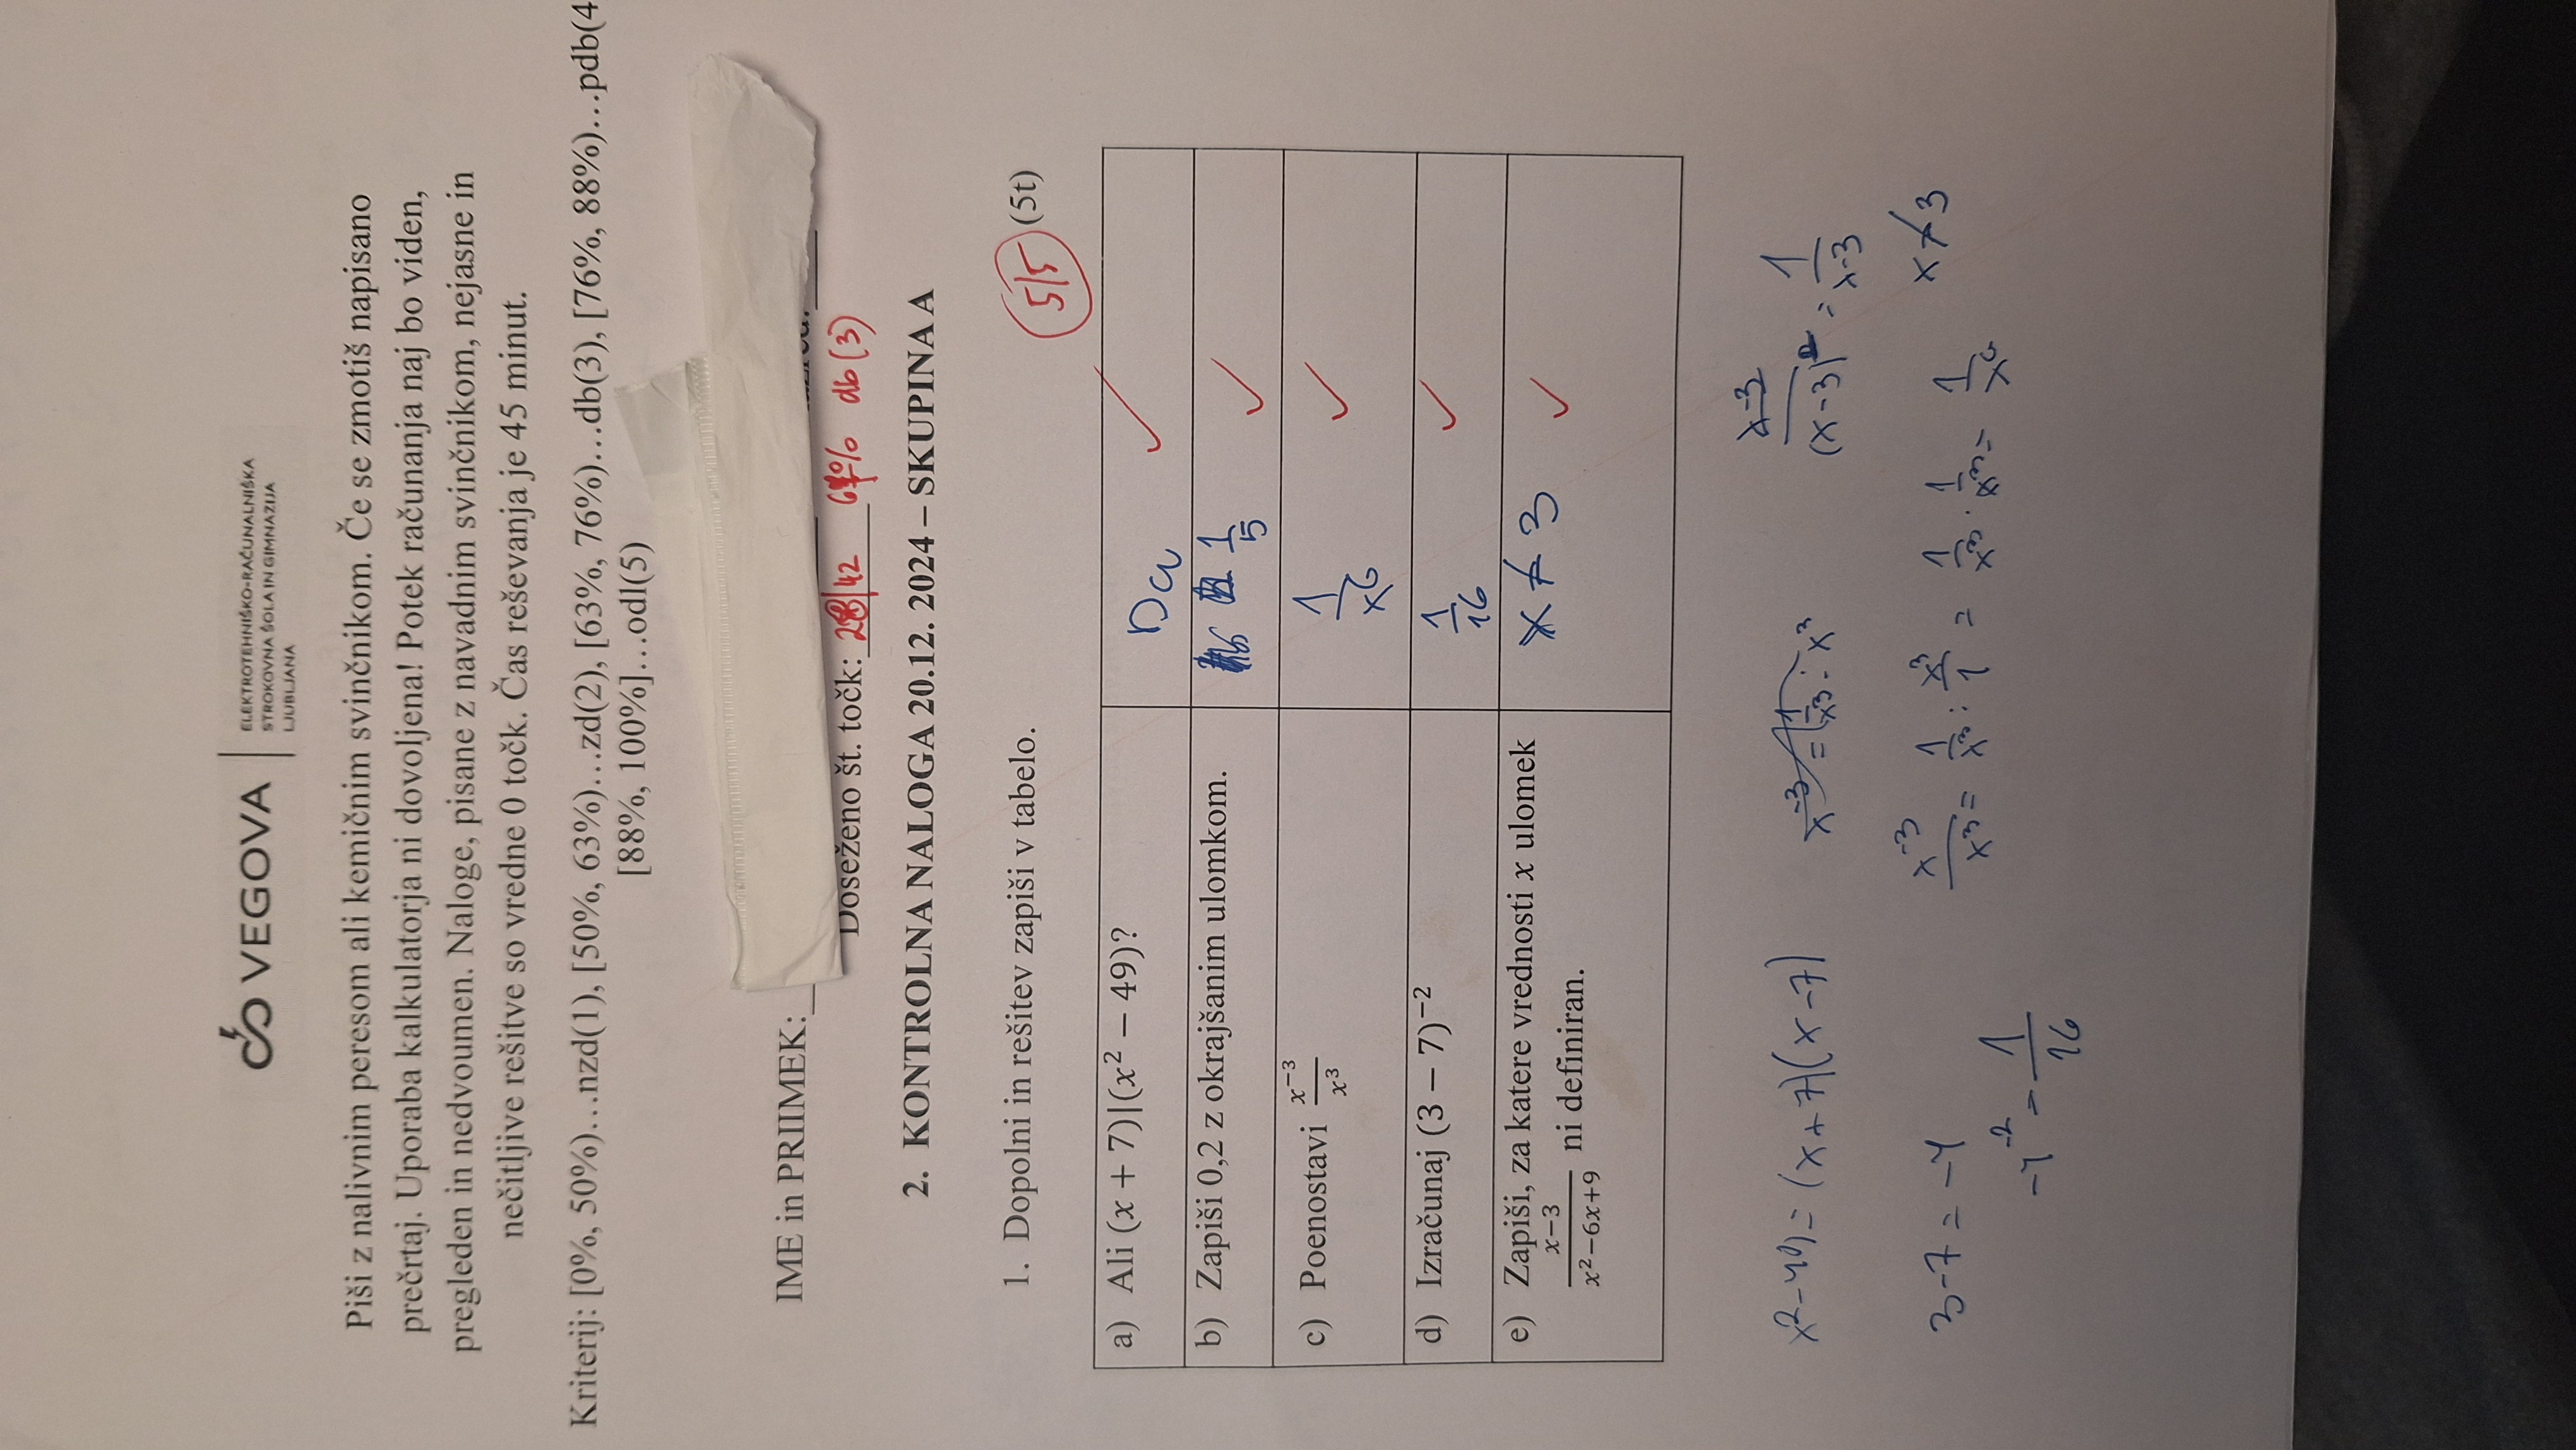 VEGOVA
ELEKTROTEHNIŠKO-RAČUNALNIŠKA
STROKOVNA ŠOLA IN GIMNAZIJA
LJUBLJANA
Piši z nalivnim peresom ali kemičnim svinčnikom. Če se zmotiš napisano
prečrtaj. Uporaba kalkulatorja ni dovoljena! Potek računanja naj bo viden,
pregleden in nedvoumen. Naloge, pisane z navadnim svinčnikom, nejasne in
nečitljive rešitve so vredne 0 točk. Čas reševanja je 45 minut.
Kriterij: [0%, 50%)…nzd(1), [50%, 63%)…zd(2), [63%, 76%)…db(3), [76%, 88%)…pdb(4
[88%, 100%]…odl(5)
IME in PRIIMEK:
Doseženo št. točk: /42 db (3)
2. KONTROLNA NALOGA 20.12. 2024 – SKUPINA A
1. Dopolni in rešitev zapiši v tabelo. 5/5 (5t)
a) Ali (x + 7)|(x² − 49)? Da
b) Zapiši 0,2 z okrajšanim ulomkom. 1/5
c) Poenostavi x⁻³/x³ 1/x⁶
d) Izračunaj (3 − 7)⁻² 1/16
e) Zapiši, za katere vrednosti x ulomek x ≠ 3
x−3/x²−6x+9 ni definiran.
x²-49 = (x+7)(x-7)
x⁻³ = (1/x³ : x³
x-3/(x-3)² = 1/x-3
3-7 = -4
x⁻³/x³ = 1/x³ : x³/1 = 1/x³ · 1/x³ = 1/x⁶
x ≠ 3
-4⁻² = 1/16